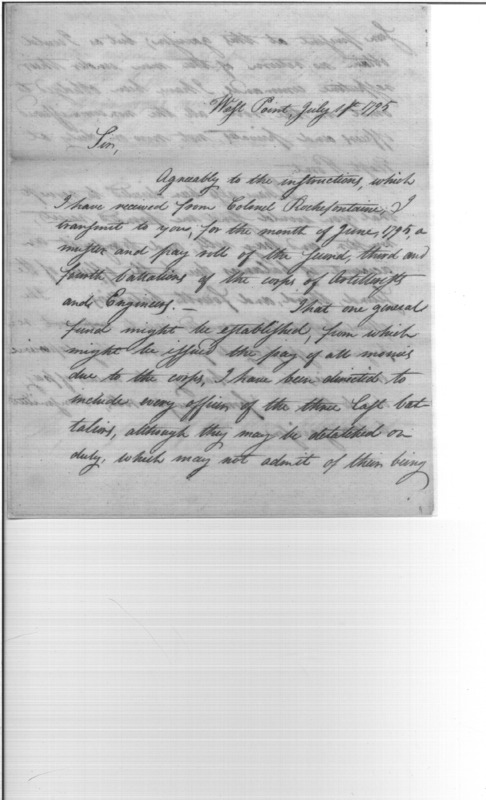 West Point, July 1st 1795
Sir,
Agreeably to the instructions, which
I have received from Colonel Rochefontaine, I
transmit to you, for the month of June, 1795, a
muster and pay roll of the second, third and
fourth battalions of the corps of Artillerists
and Engineers. — That one general
fund might be established, from which
might be issued the pay of all monies
due to the corps, I have been directed to
include every officer of the three last bat-
talions, although they may be detatched on
duty, which may not admit of them being